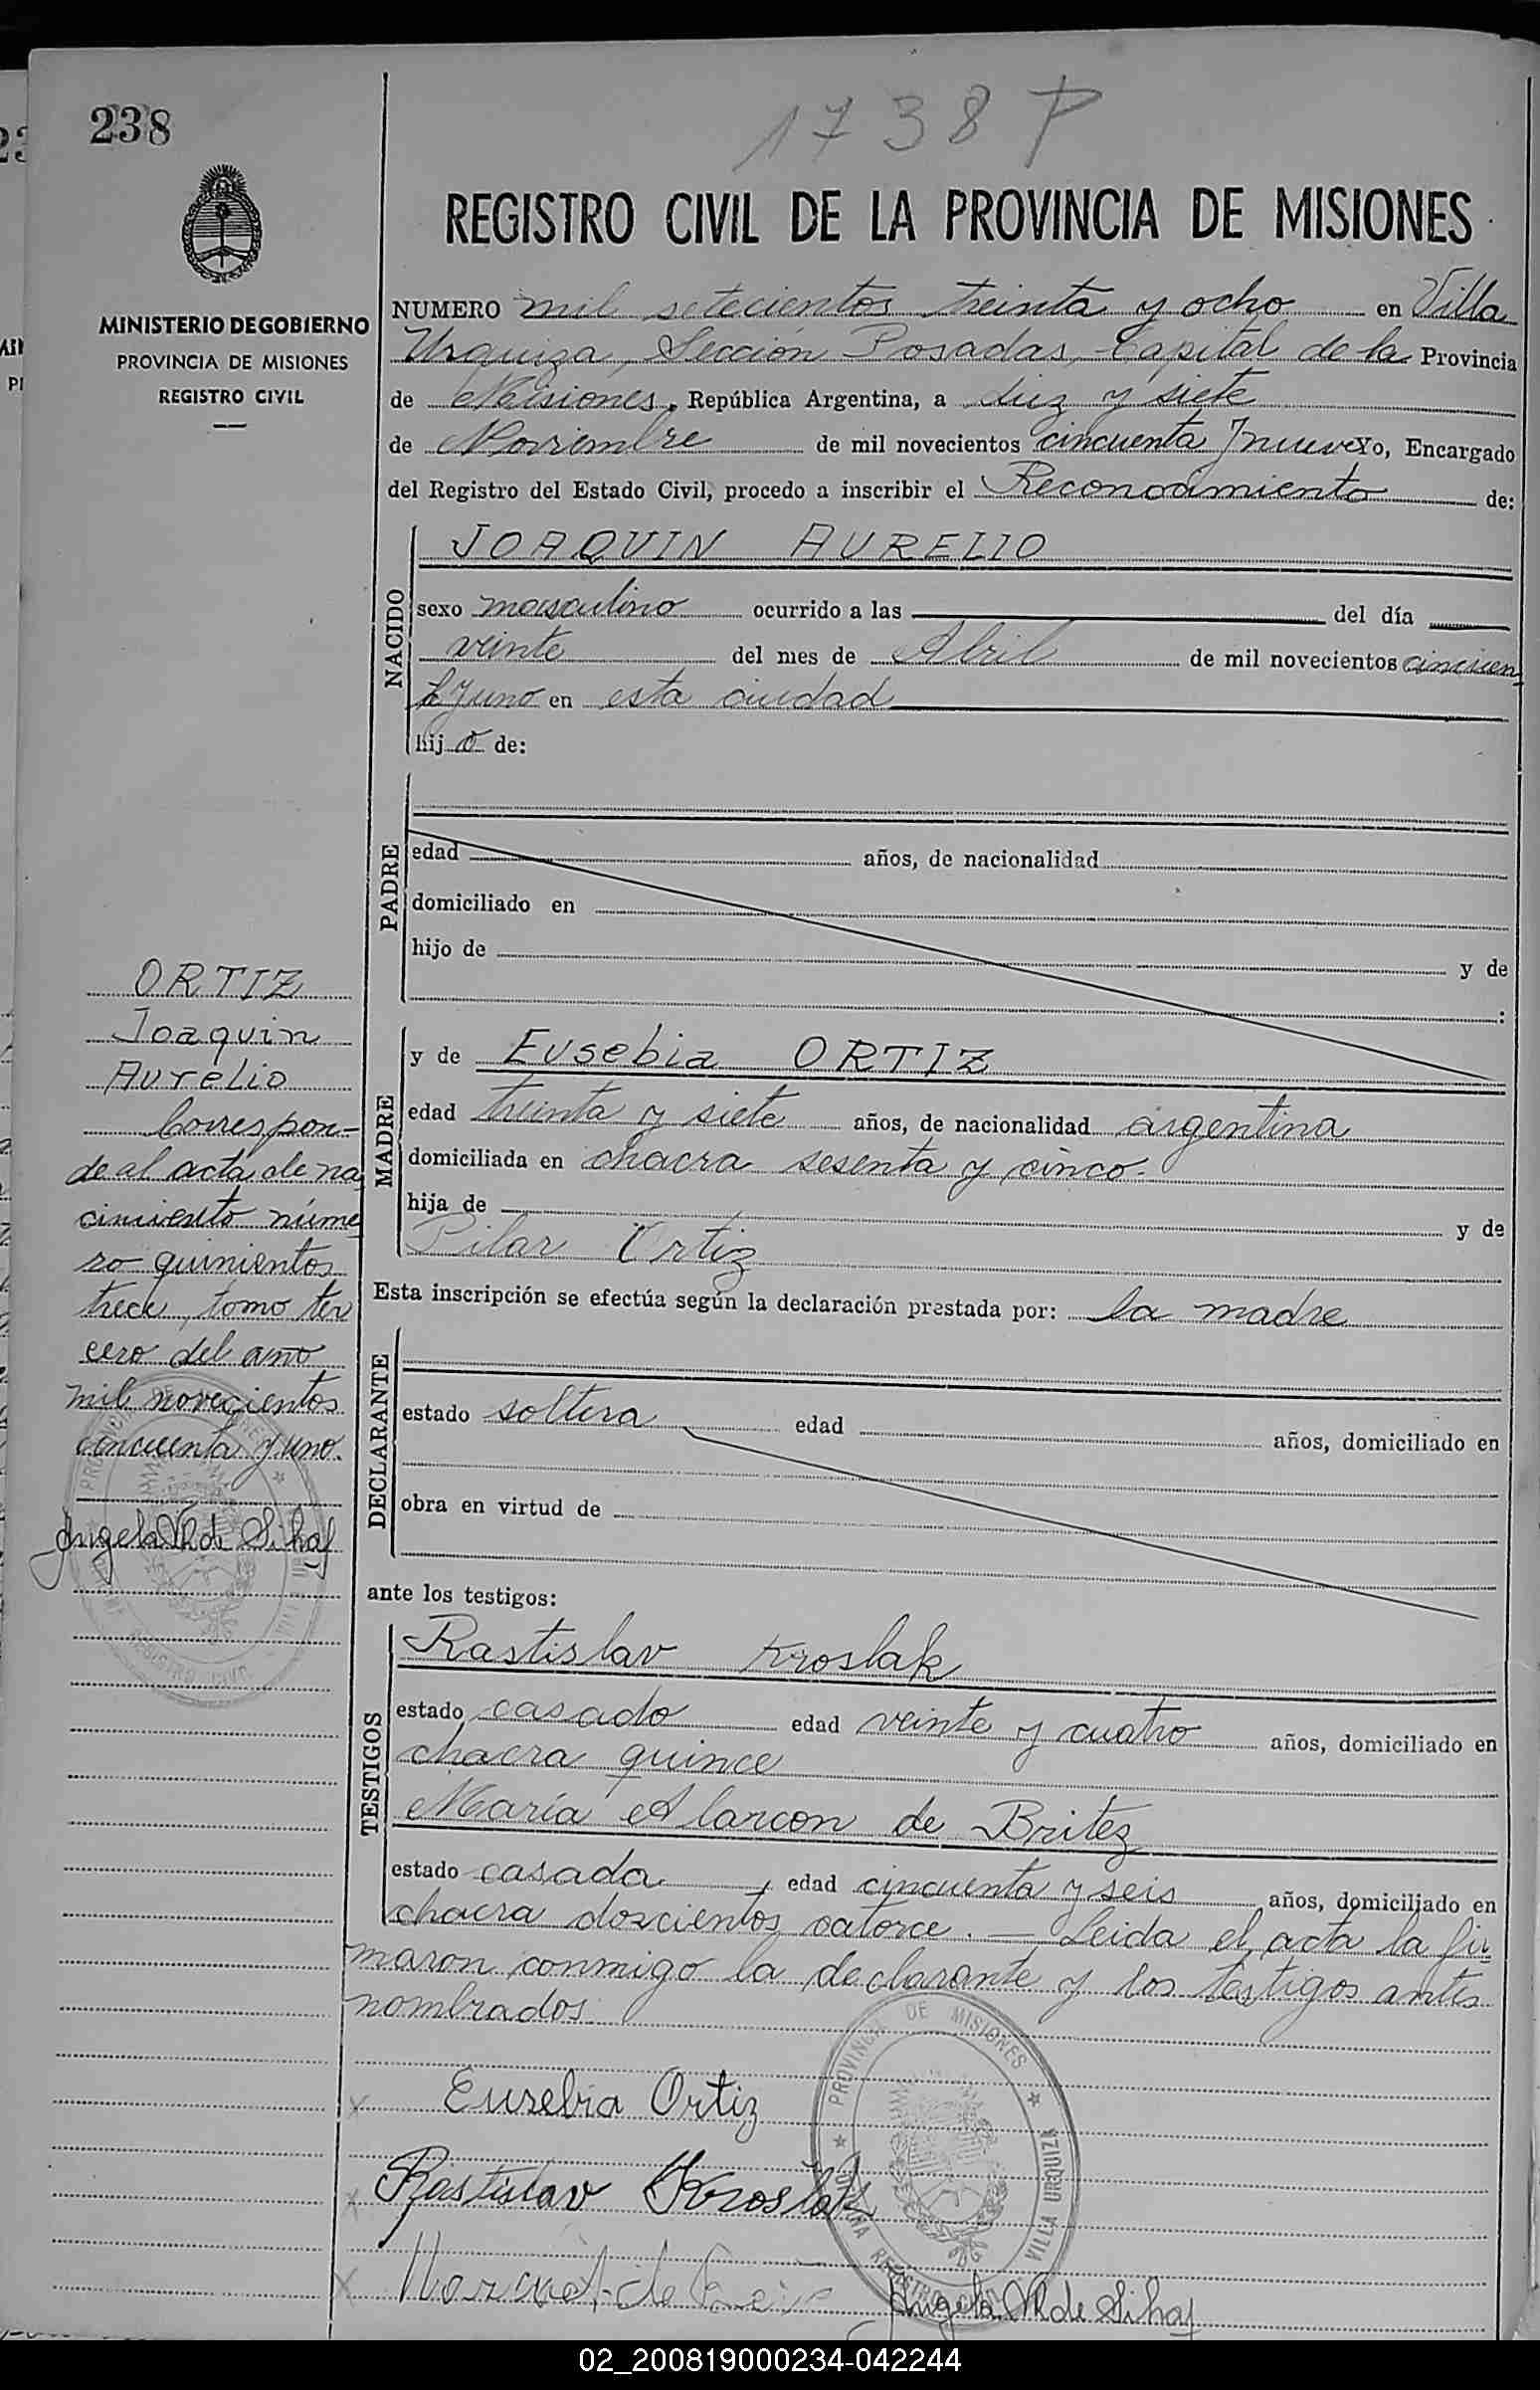 238
1738 P
REGISTRO CIVIL DE LA PROVINCIA DE MISIONES
MINISTERIO DE GOBIERNO
PROVINCIA DE MISIONES
REGISTRO CIVIL
NUMERO mil setecientos treinta y ocho en Villa
Urquiza, Sección Posadas, Capital de la Provincia
de Misiones, República Argentina, a diez y siete
de Noviembre de mil novecientos cincuenta y nueve yo, Encargado
del Registro del Estado Civil, procedo a inscribir el Reconocimiento de:
NACIDO
JOAQUIN AURELIO
sexo masculino ocurrido a las del día
veinte del mes de Abril de mil novecientos cincuen
ta y uno en esta ciudad
hijo de:
PADRE
edad años, de nacionalidad
domiciliado en
hijo de y de
:
MADRE
y de Eusebia ORTIZ
edad treinta y siete años, de nacionalidad argentina
domiciliada en chacra sesenta y cinco.
hija de y de
Pilar Ortiz
Esta inscripción se efectúa según la declaración prestada por: la madre
DECLARANTE
estado soltera edad años, domiciliado en
obra en virtud de
ante los testigos:
TESTIGOS
Rastislav Kroslak
estado casado edad veinte y cuatro años, domiciliado en
chacra quince
María Alarcon de Britez
estado casada, edad cincuenta y seis años, domiciliado en
chacra doscientos catorce. — Leida el acta la fir
maron conmigo la declarante y los testigos antes
nombrados.
Eusebia Ortiz
Rastislav Kroslak
ORTIZ
Joaquin
Aurelio
Correspon-
de al acta de na
cimiento núme
ro quinientos
trece, tomo ter
cero del año
mil novecientos
cincuenta y uno.
PROVINCIA DE MISIONES
VILLA URQUIZA
02_200819000234-042244